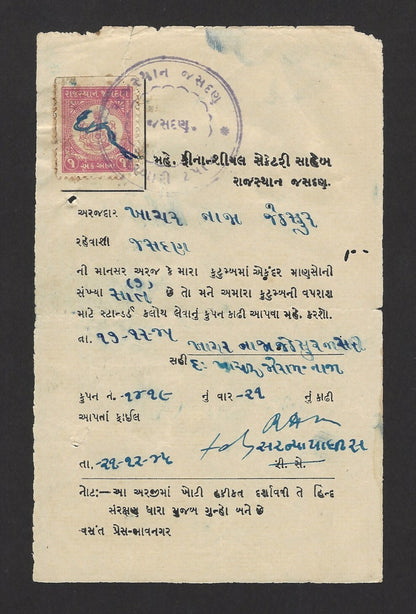 રાજસ્થાન જસદણ
૧
એક આનો
૧
રાજસ્થાન જસદણ
જસદણ.
મહે. ફીનાન્શીયલ સેક્રેટરી સાહેબ
રાજસ્થાન જસદણ.
અરજદાર ખાચર નાજા જેઠસુર
રહેવાશી જસદણ
ની માનસર અરજ કે મારા કુટુંબમાં એકંદર માણસોની
સંખ્યા સાત (૭) છે તો મને અમારા કુટુંબની વપરાશ
માટે સ્ટાન્ડર્ડ કલોથ લેવાનું કુપન કાઢી આપવા મહે. કરશો.
તા. ૧૭-૧૨-૪૫
ખાચર નાજા જેઠસુરના સહી
સહી દઃ ખાચર નાજા
કુપન નં. ૧૪૧૯ નું વાર-૨૧ નું કાઢી
આપતાં ફાઈલ
સરન્યાયાધીશ
તા. ૨૧-૧૨-૪૫ ફી. સે.
નોટ:—આ અરજીમાં ખોટી હકીકત દર્શાવવી તે હિન્દ
સંરક્ષણ ધારા મુજબ ગુન્હો બને છે
વસંત પ્રેસ-ભાવનગર